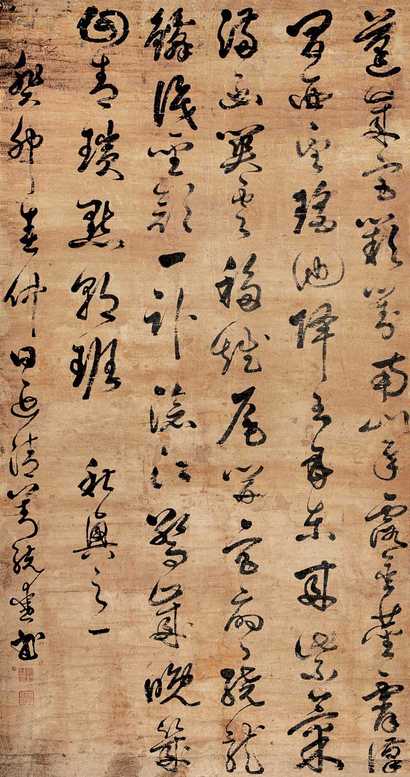 蓬萊宮闕對南山承露金莖霄漢
間西望瑤池降王母東來紫氣
滿函關雲移雉尾開宮扇日繞龍
鱗識聖顏一臥滄江驚歲晚幾
回青瑣點朝班 秋興之一
癸卯春仲日 書